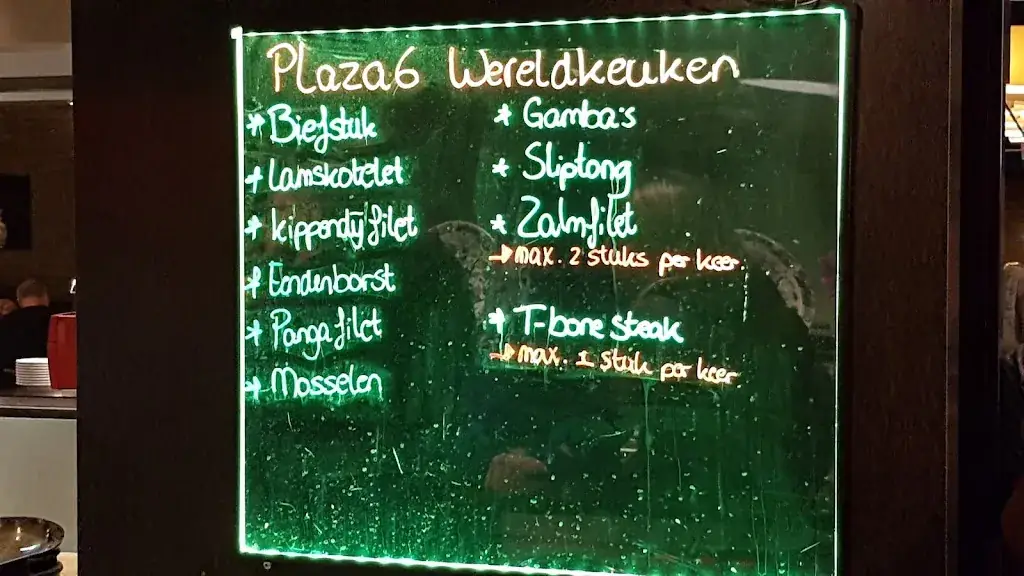 Plaza6 Wereldkeuken
* Biefstuk
* Lamskotelet
* kippendijfilet
* Eendenborst
* Pangafilet
* Mosselen
* Gamba's
* Sliptong
* Zalmfilet
→ max. 2 stuks per keer.
* T-bone steak
→ max. 1 stuk per keer